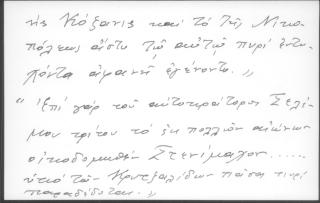 τῆς Κόζανις καὶ τὸ τῆς Νικο-
πόλεως ἄστυ τῷ αὐτῷ πυρὶ
ἐγένοντο. »
"Ἐπὶ γὰρ τοῦ αὐτοκράτορος Σελί-
μου τρίτου τὸ ἐκ πολλῶν αἰώνων
οἰκοδομηθὲν Στενίμαχον......
ὑπὸ τῶν Κριτζαλίδων πᾶσα πυρὶ
παραδίδοται. »